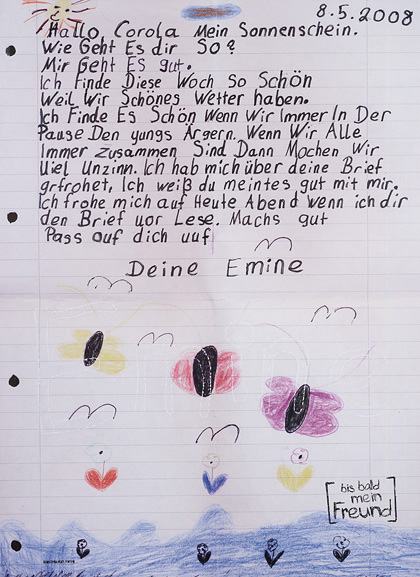 8.5.2008
Hallo Corola Mein Sonnenschein.
Wie Geht Es dir So?
Mir Geht Es gut.
Ich Finde Diese Woch So Schön
Weil Wir Schönes Wetter haben.
Ich Finde Es Schön Wenn Wir Immer In Der
Pause Den yungs Ärgern. Wenn Wir Alle
Immer zusammen Sind Dann Mochen Wir
Uiel Unzinn. Ich hab mich über deine Brief
grfrohet, Ich weiß du meintes gut mit mir.
Ich frohe mich auf Heute Abend wenn ich dir
den Brief vor Lese. Machs gut
Pass auf dich uuf
Deine Emine
bis bald
mein
Freund